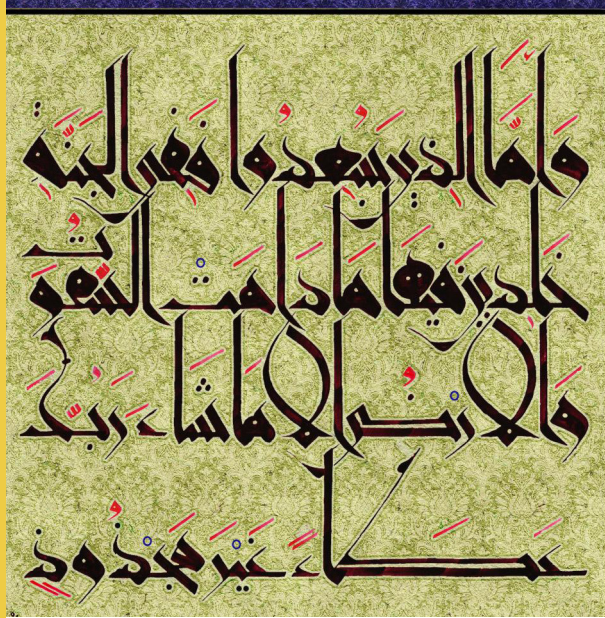 وَأَمَّا الَّذِينَ سُعِدُوا فَفِي الْجَنَّةِ
خَٰلِدِينَ فِيهَا مَا دَامَتْ السَّمَٰوَٰتُ
وَالْأَرْضُ إِلَّا مَا شَاءَ رَبُّكَ
عَطَاءً غَيْرَ مَجْذُوذٍ